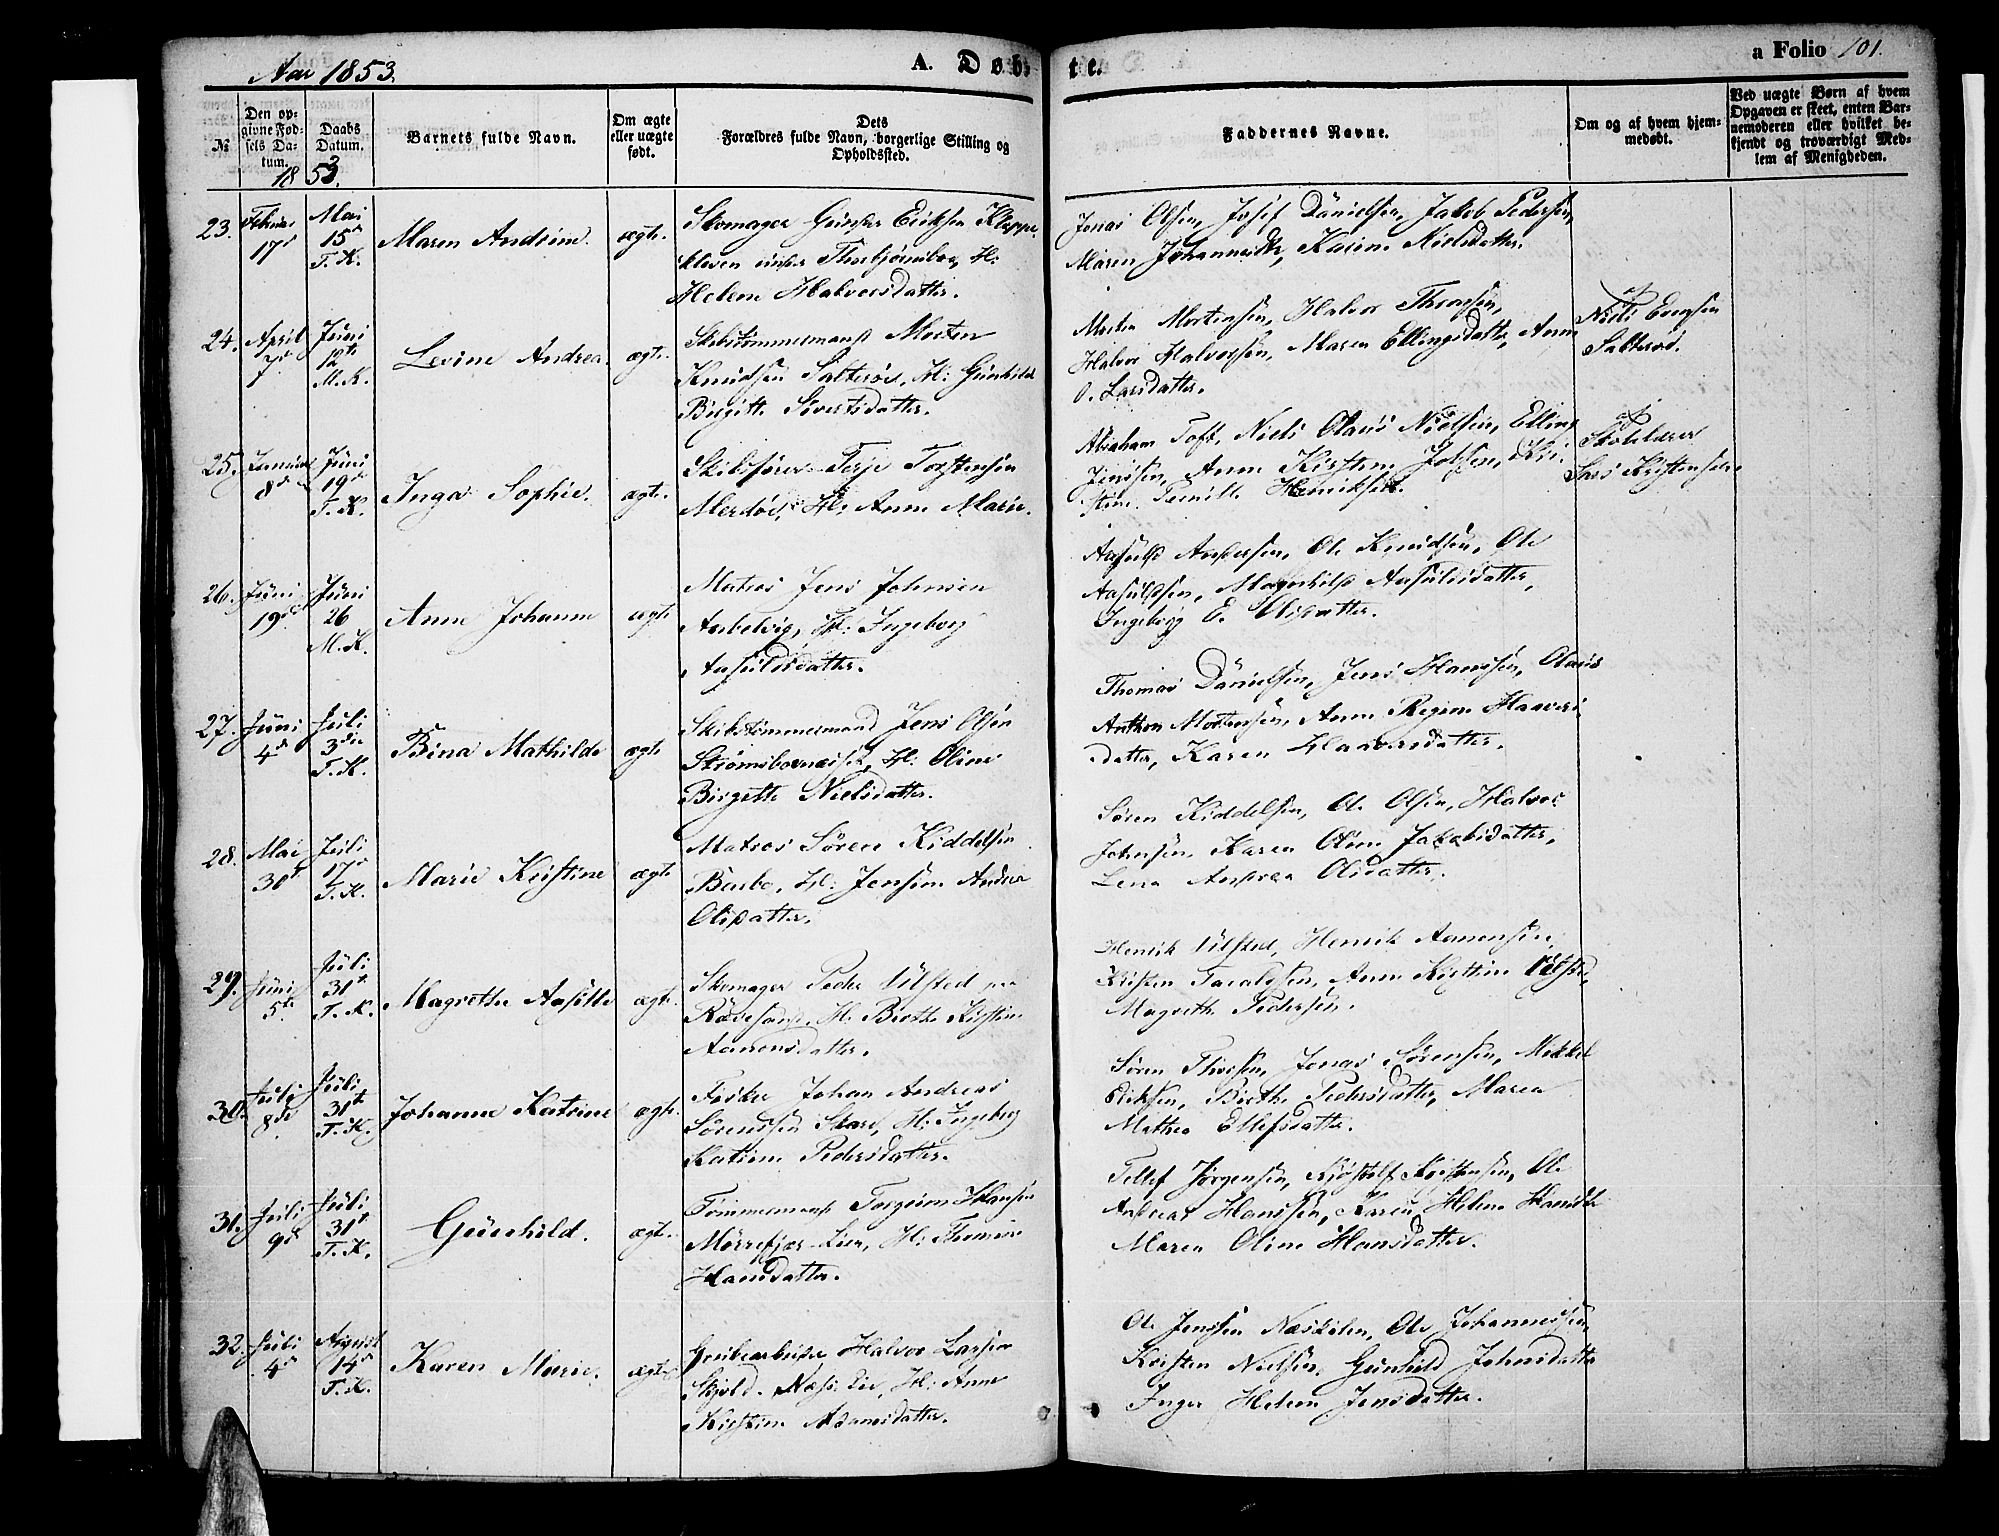 Aar 1853.
A. Døb-
te.
a Folio 101.
No
Den op-
givne Fød-
sels Da-
tum.
Daabs
Datum.
Barnets fulde Navn.
Om ægte
eller uægte
født.
Dets
Forældres fulde Navn, borgerlige Stilling og
Opholdssted.
Faddernes Navne.
Om og af hvem hjem-
medøbt.
Ved uægte Børn af hvem
Opgaven er skeet, enten Bar-
nemoderen eller hvilket be-
kjendt og troværdigt Med-
lem af Menigheden.
1853.
23.
Februar
17d
Mai
15d
T. K.
Maren Andrine.
ægte.
Skomager Gunder Eriksen Kleppe
kleven under Thorbjørnsboe, H:
Helene Halvorsdatter.
Jonas Olsen, Josef Danielsen, Jakob Pedersen,
Maren Johannesdtr, Karine Nielsdatter.
24.
April
7d
Juni
12te
M. K.
Levine Andrea.
ægte.
Skibstømmermand Morten
Knudsen Salterøe, H: Gunhild
Birgitte Sivertsdatter.
Morten Mortensen, Halvor Thronsen,
Halvor Halvorsen, Maren Ellingsdatter, Anne
O. Larsdatter.
af
Niels Evensen
Salterød.
25.
Januar
8d
Juni
19d
T. K.
Inga Sophie.
ægte.
Skibsfører Terje Torstensen
Merdøe, H: Anne Marie.
Abraham Toft, Niels Olaus Nielsen, Elling
Jenssen, Anne Kirstine Jolsen, Kri-
stine Pernille Henriksen.
af
Skolelærer
Lars Kristensen
26.
Juni
19de
Juni
26
M. K.
Anne Johanne
ægte
Matros Jens Johnsen
Narbelvig, H: Ingeborg
Aasuldsdatter.
Aasuld Andersen, Ole Knudsen, Ole
Aasuldsen, Magnhild Aasuldsdatter,
Ingeborg E. Olsdatter.
27.
Juni
4d
Juli
3die
T. K.
Bina Mathilde
ægte
Skibstømmermand Jens Olsen
Strømsboenæsset, H: Oline
Birgitte Nielsdatter.
Thomas Danielsen, Jens Hanssen, Olaus
Anthon Mortensen, Anne Regine Haavers-
datter, Karen Haaversdatter.
28.
Mai
30t
Juli
17d
T. K.
Marie Kristine
ægte
Matros Søren Kiddelsen
Barbo, H: Jensine Andrea
Olsdatter.
Søren Kiddelsen, Ole Olsen, Halvor
Johnsen, Karen Oline Jakobsdatter,
Lena Andrea Olsdatter.
29.
Juni
5te
Juli
31t
T. K.
Magrethe Aasille
ægte.
Skomager Peder Ulsted paa
Revesand, H: Birthe Kirstine
Aanonsdatter.
Henrik Ulsted, Henrik Aanonsen,
Kristen Taraldsen, Anne Kirstine Ulsted,
Magrethe Pedersen.
30.
Juli
8de
Juli
31t
T. K.
Johanne Katrine
ægte.
Fisker Johan Andreas
Sørenssen Skare, H: Ingeborg
Katrine Pedersdatter.
Søren Thorsen, Jonas Sørensen, Mikkel
Eriksen, Birthe Pedersdatter, Maren
Mathea Ellefsdatter.
31.
Juli
9d
Juli
31t
T. K.
Gunhild.
ægte.
Tømmermand Torgrim Hansen
Mørrefjær Eien, H: Thomine
Hansdatter.
Tellef Jørgensen, Kjøstolf Kristensen, Ole
Andreas Hanssen, Karen Helene Hansdtr
Maren Oline Hansdatter.
32.
Juli
4d
August
14d
T. K.
Karen Marie.
ægte
Grubearbeider Halvor Larsen
Skjold. Næs. Eie, H: Anne
Kirstine Adamsdatter.
Ole Jenssen Næskilen, Ole Johannessen,
Kristen Nielsen, Gunhild Johnsdatter
Inger Helene Jensdatter.